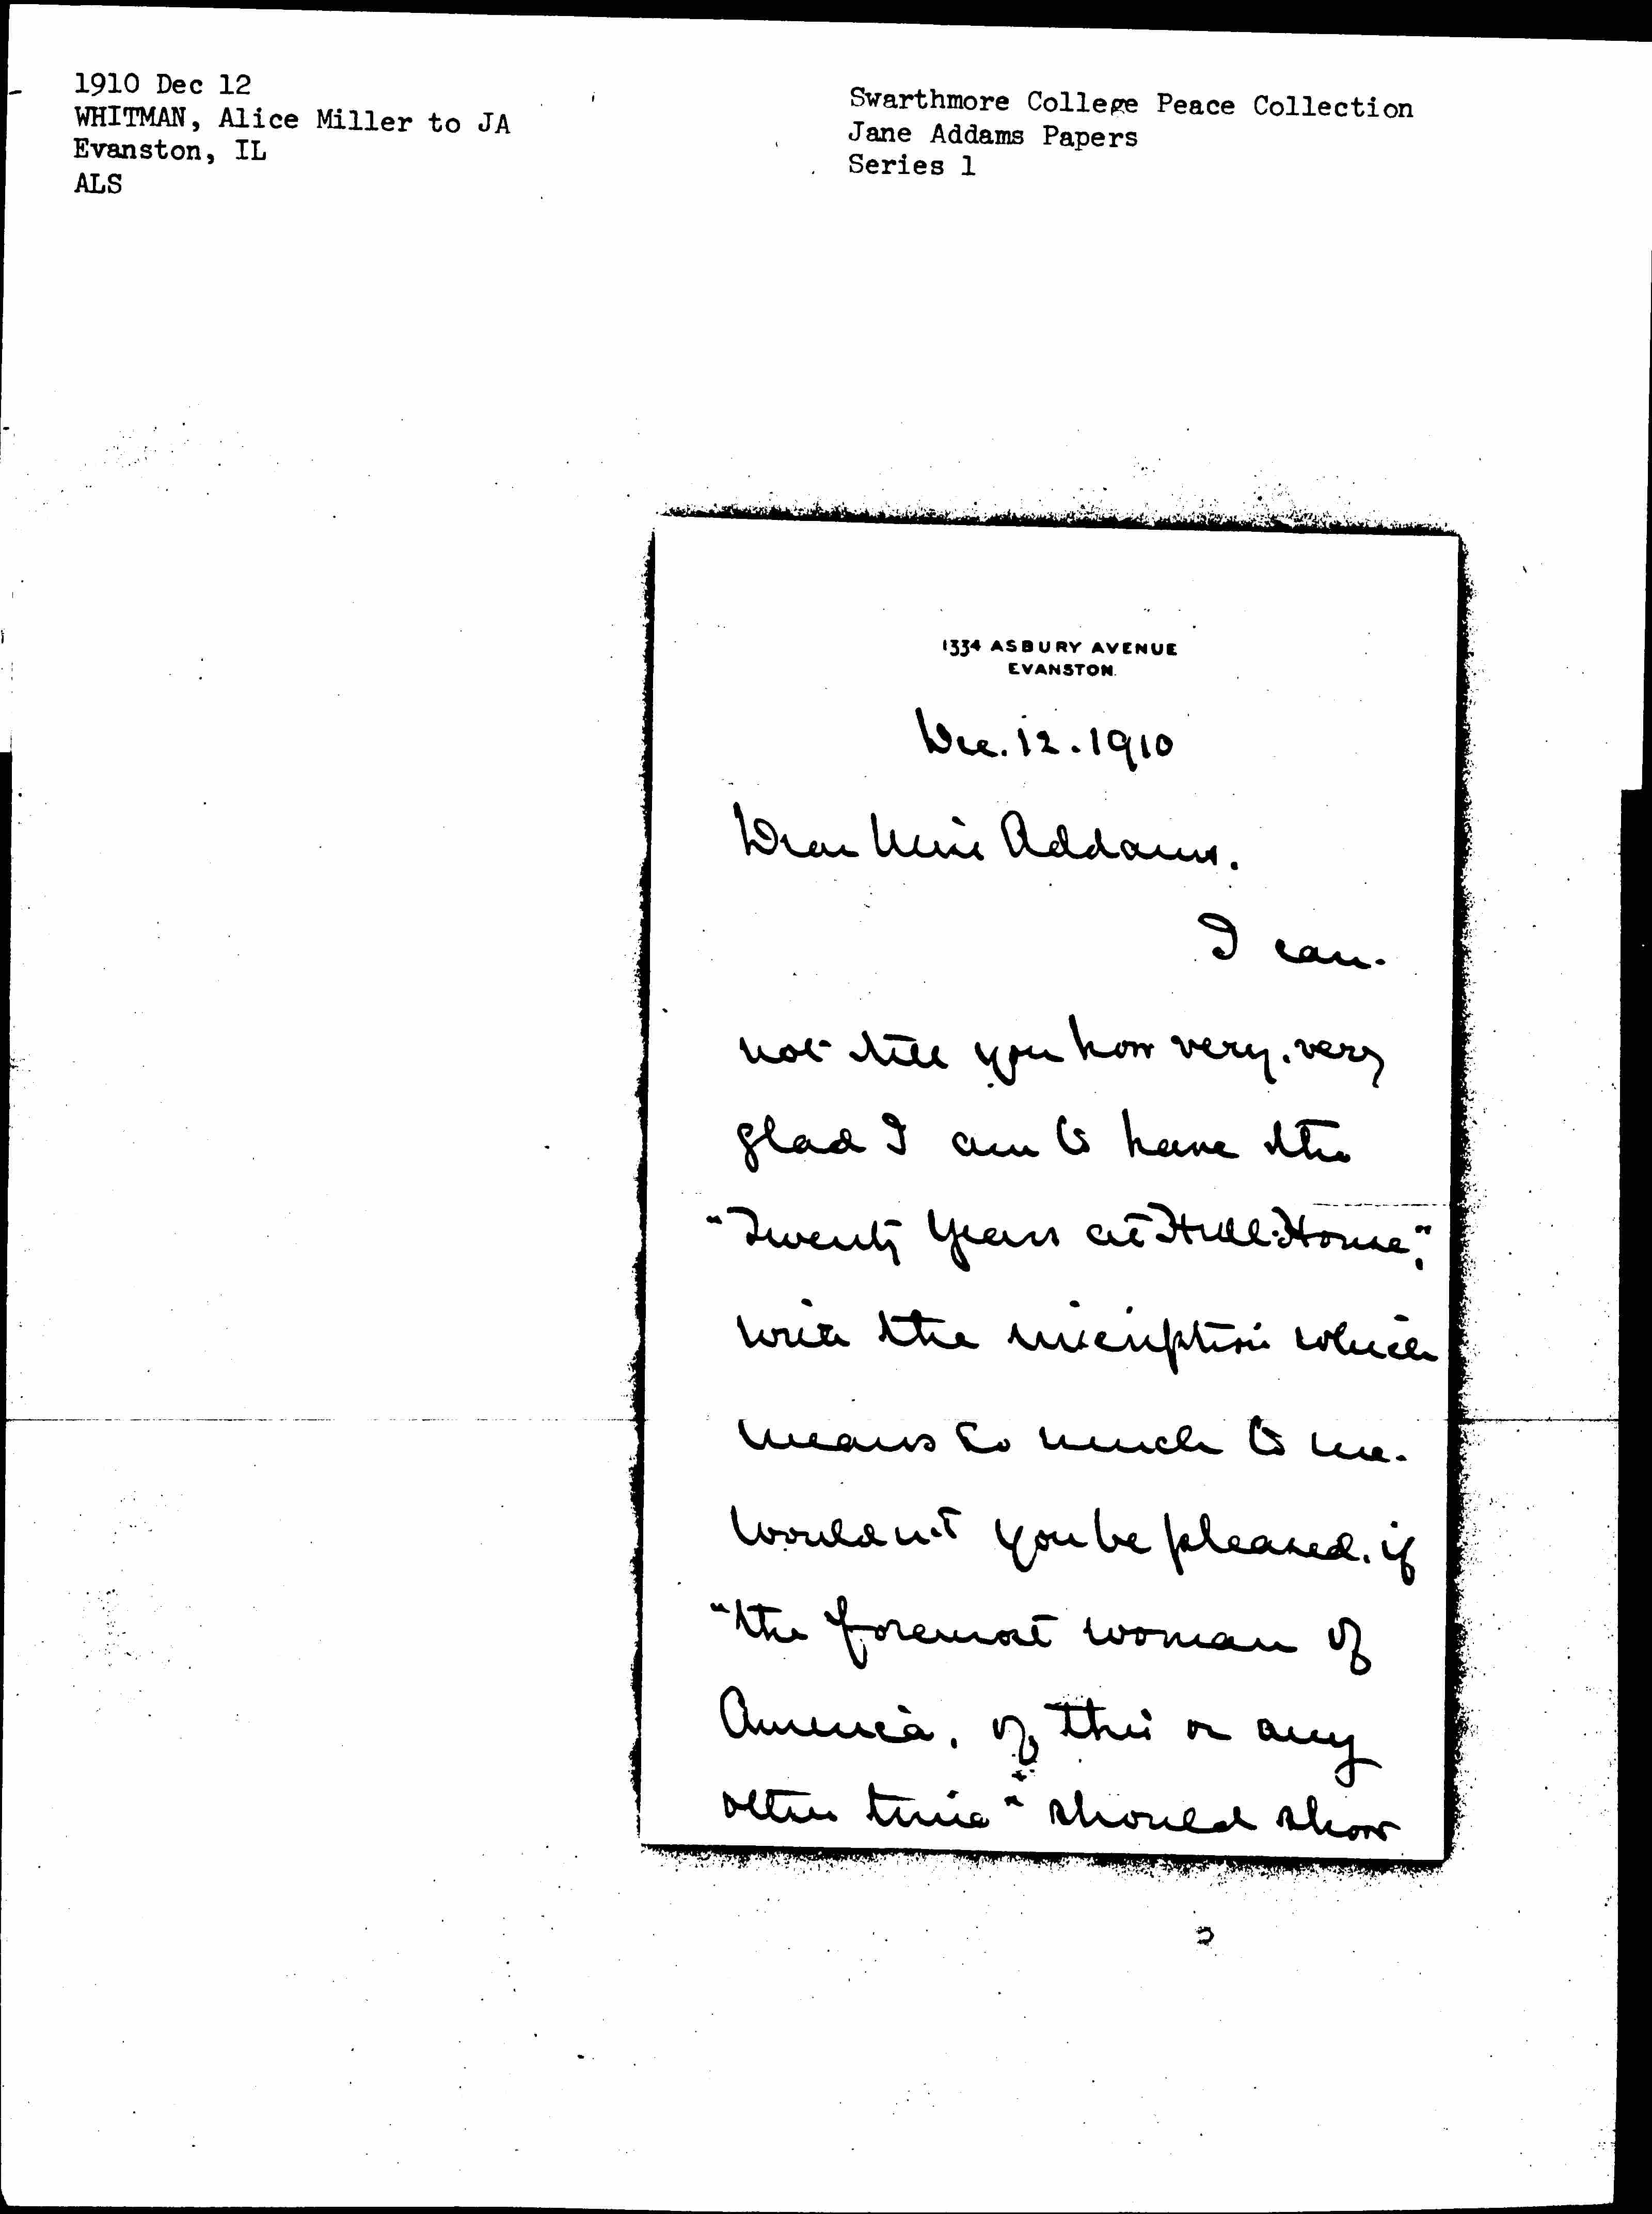 1910 Dec 12
WHITMAN, Alice Miller to JA
Evanston, IL
ALS
Swarthmore College Peace Collection
Jane Addams Papers
Series 1
1334 ASBURY AVENUE
EVANSTON.
Dec. 12. 1910
Dear Miss Addams.
I can-
not tell you how very, very
glad I am to have the
"Twenty Years at Hull-House",
with the inscription which
means so much to me.
Wouldn't you be pleased, if
"the foremost woman of
America, of this or any
other time" should show